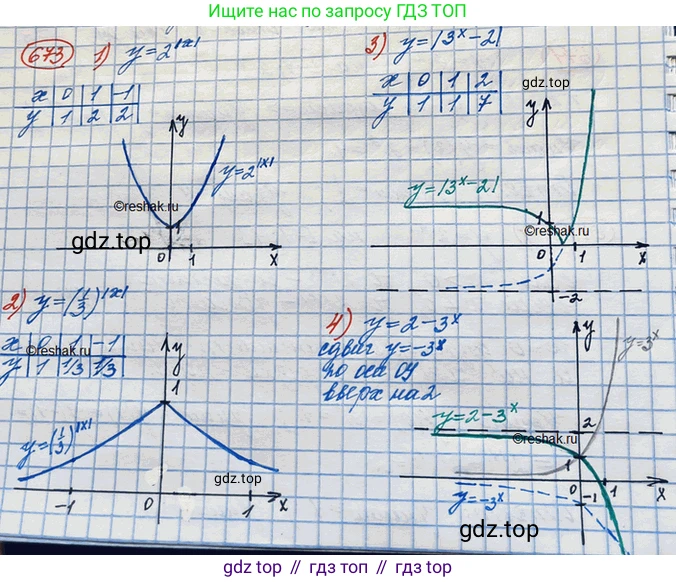 Ищите по запросу ГДЗ ТОП
673 1) y=2^|x|
x 0 1 -1
y 1 2 2
y
y=2^|x|
©reshak.ru
1
gdz.top
0 1 x
3) y=|3^x-2|
gdz.top
x 0 1 2
y 1 1 7
y
y=|3^x-2|
1
©reshak.ru
0 1 x
-2
2) y=(1/3)^|x|
x 0 1 -1
y 1 1/3 1/3
©reshak.ru
y
1
y=(1/3)^|x|
gdz.top
-1 0 1 x
4) y=2-3^x
сдвиг y=-3^x
по оси ОУ
вверх на 2
y
y=3^x
2
y=2-3^x
©reshak.ru
1
0 1 x
-1
y=-3^x
gdz.top
gdz.top // гдз.топ // гдз.top